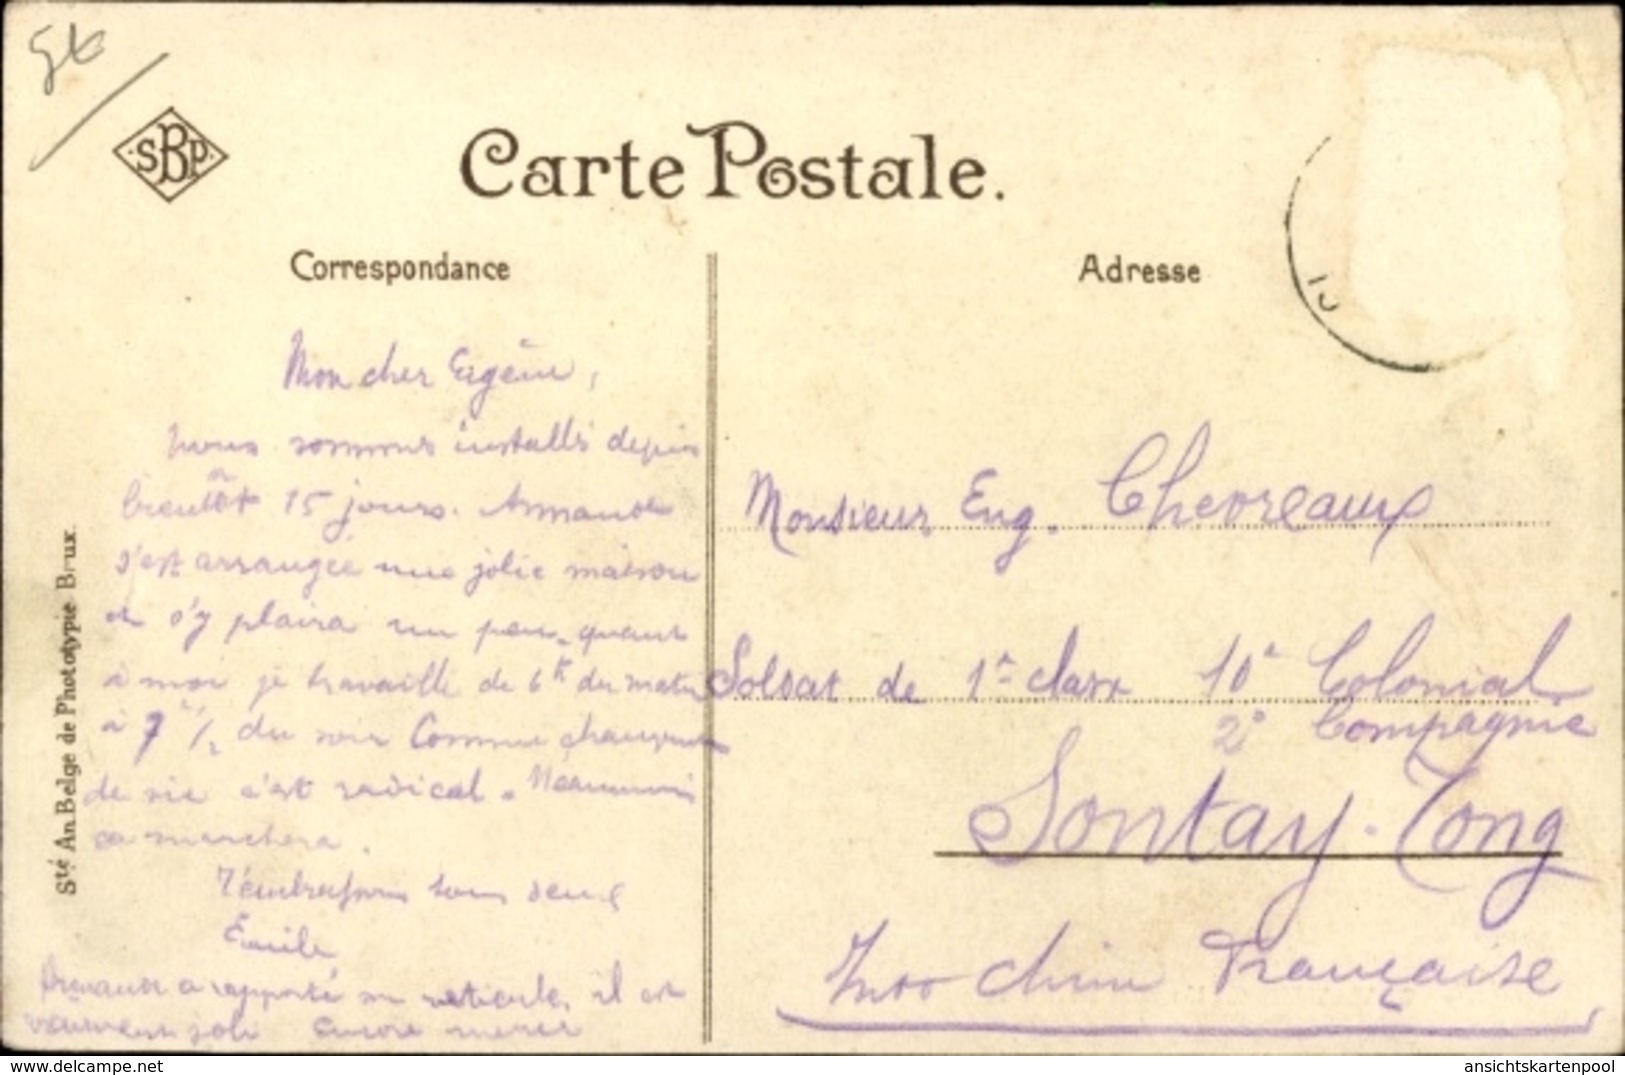 SBP
Carte Postale.
Correspondance
Adresse
Sté An. Belge de Phototypie Brux.
Mon cher Eugène,
nous sommes installés depuis
bientôt 15 jours. Armande
s'est arrangée une jolie maison
et s'y plaira un peu. quant
à moi je travaille de 6h du matin
à 7 1/2 du soir Comme changement
de vie c'est radical. Néanmoins
ça marchera.
T'embrassons tous deux
Emile
Armande a rapporté un reticule, il est
vraiment joli encore merci
Monsieur Eug. Chevreaux
Soldat de 1re classe 10e Colonial
2e Compagnie
Sontay-Tong
Indo chine Française
hippostcard.com
ansichtskartenpool